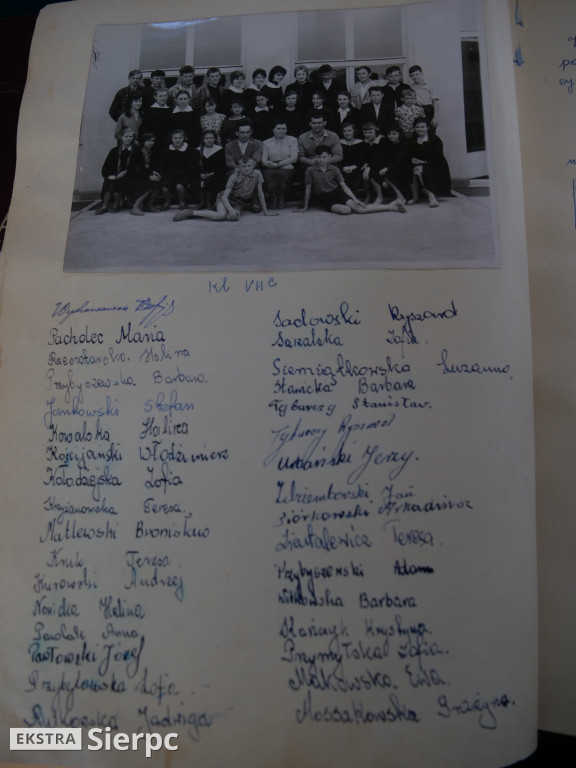 Kl VIIc
Pacholec Maria
Halina
Przybyszewska Barbara.
Jankowski Stefan
Kowalska Halina
Włodzimierz
Kołodziejska Zofia
Krzyżanowska Teresa.
Matlewski Bronisław
Kruk Teresa.
Kurowski Andrzej
Nowicka Halina
Pawlak Anna
Pawłowski Józef
Przybyłowska Zofia
Rutkowska Jadwiga
Sadowski Ryszard
Zofia.
Siemiątkowska Zuzanna.
Stanicka Barbara
Tyburczy Stanisław.
Tyburczy Ryszard
Urbański Jerzy.
Zdziemborski Jan
Piórkowski Arkadiusz
Teresa.
Przybyszewski Adam
Witkowska Barbara
Krystyna.
Zofia.
Makowska Ewa.
Mossakowska Grażyna.
EKSTRA Sierpc